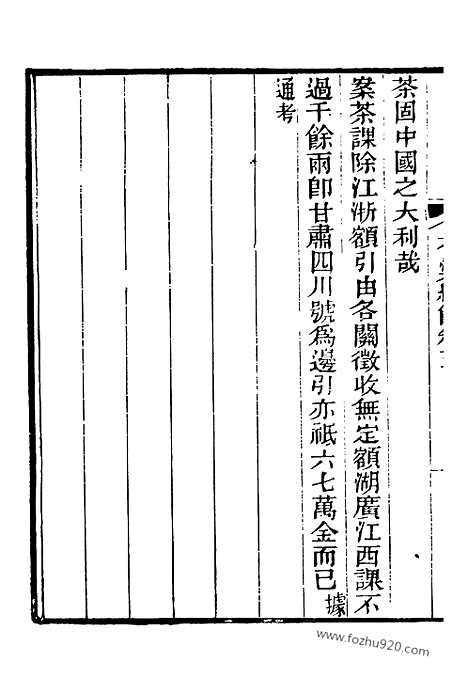 茶固中國之大利哉
案茶課除江浙額引由各關徵收無定額湖廣江西課不
過千餘兩卽甘肅四川號爲邊引亦祇六七萬金而已據
通考
www.fozhu920.com